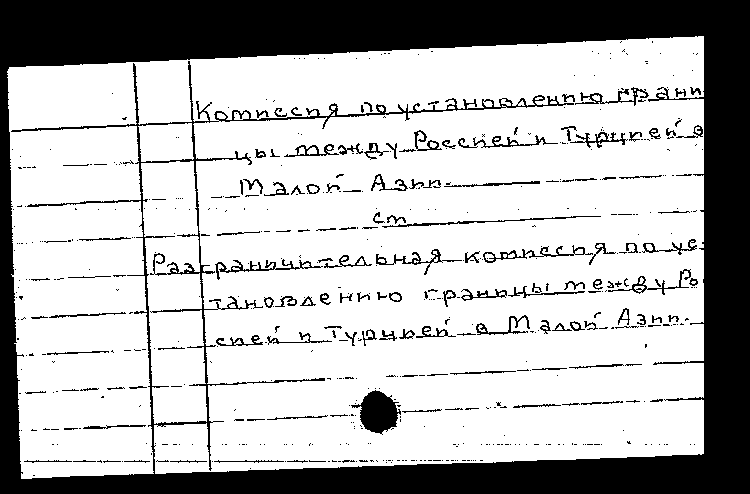 Комиссия по установлению грани
цы между Россией и Турцией в
Малой Азии.
см
Разграничительная комиссия по ус-
тановлению границы между Ро
сией и Турцией в Малой Азии.